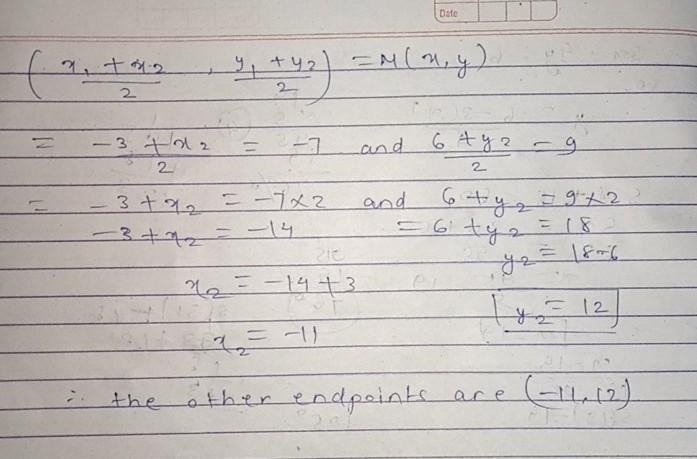 Date
(x₁ + x₂ / 2 , y₁ + y₂ / 2) = M(x, y)
= -3 + x₂ / 2 = -7 and 6 + y₂ / 2 = 9
= -3 + x₂ = -7×2 and 6 + y₂ = 9×2
-3 + x₂ = -14 = 6 + y₂ = 18
y₂ = 18-6
x₂ = -14 + 3
y₂ = 12
x₂ = -11
∴ the other endpoints are (-11, 12)